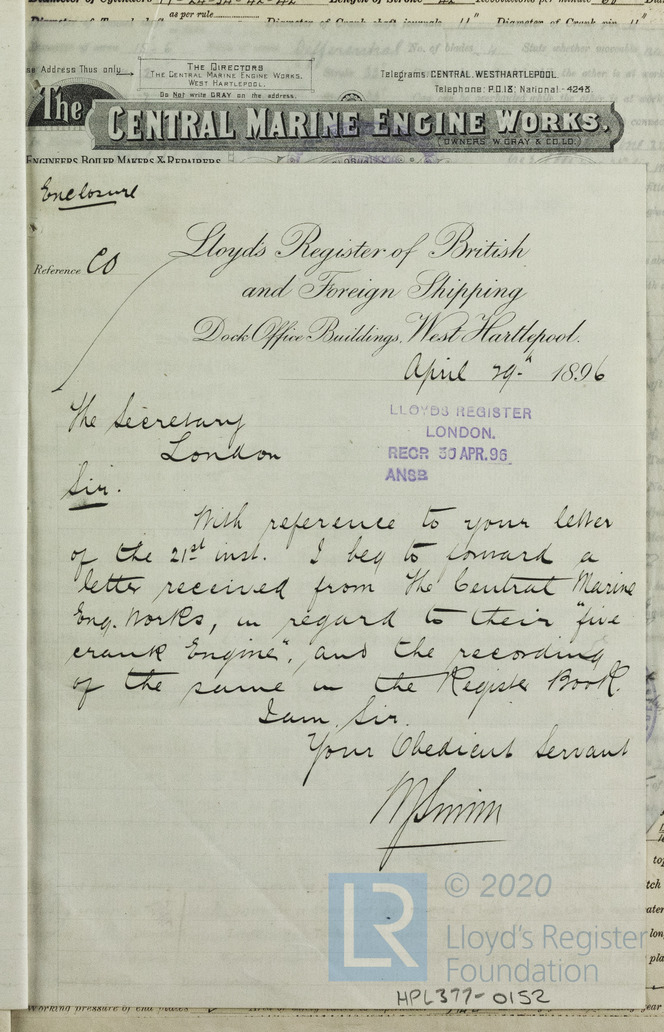 as per rule
Address Thus only
THE DIRECTORS
THE CENTRAL MARINE ENGINE WORKS.
WEST HARTLEPOOL.
Do Not write GRAY on the address.
Telegrams CENTRAL. WESTHARTLEPOOL.
Telephone: P.O.18; National - 4248
The CENTRAL MARINE ENGINE WORKS.
(OWNERS W. GRAY & CO LD.)
ENGINEERS BOILER MAKERS & REPAIRERS
Enclosure
Reference CO
Lloyd's Register of British
and Foreign Shipping
Dock Office Buildings, West Hartlepool.
April 29th 1896
LLOYDS REGISTER
LONDON.
RECR 30 APR. 96
ANSB
The Secretary
London
Sir.
With reference to your letter
of the 21st inst. I beg to forward a
letter received from the Central Marine
Eng. Works, in regard to their "five
crank Engine", and the recording
of the same in the Register Book.
I am, Sir.
Your Obedient Servant
LR
© 2020
Lloyd's Register
Foundation
HPL377-0152
Working pressure of end plates